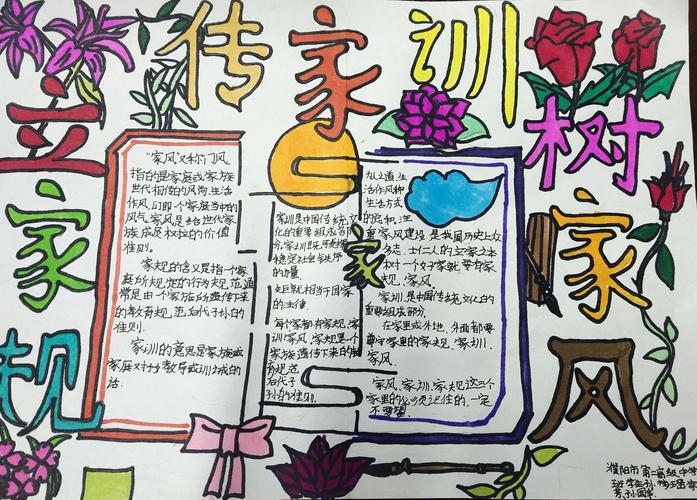 立家规
传家训
树家风
"家风"又称门风,
指的是家庭或家族
世代相传的风尚、生活
作风,即一个家庭当中的
风气,家风是给世代家
族成员权拉的价值
准则。
家规的含义是指一个家
庭所规定的行为规范,通
常是由一个家族所遗传下来
的教育规范后代子孙的
准则.
家训的意思是家族或
家庭对子孙教导或训诫的
话.
家训是中国传统文
化的重要组成部
分,家训
稳定社会秩序
的力量
就相当于国家
的法律
每个家都有家规、家
训、家风,家规是一个
家族遗传下来的教
育规范
后代子
孙的准则.
家
生活作风和
生活方式
的总和,注
重家风建设是我国历史上众
多志士仁人的立家之本
对一个好家就要有家
规、家风.
家训是中国传统文化的
重要组成部分.
在家里或外地,外面都要
遵守家里的家规、家训、
家风.
家风、家训、家规这三个
家里的必须记住的,一定
不要忘
濮阳市第二高级中学
班学生孙